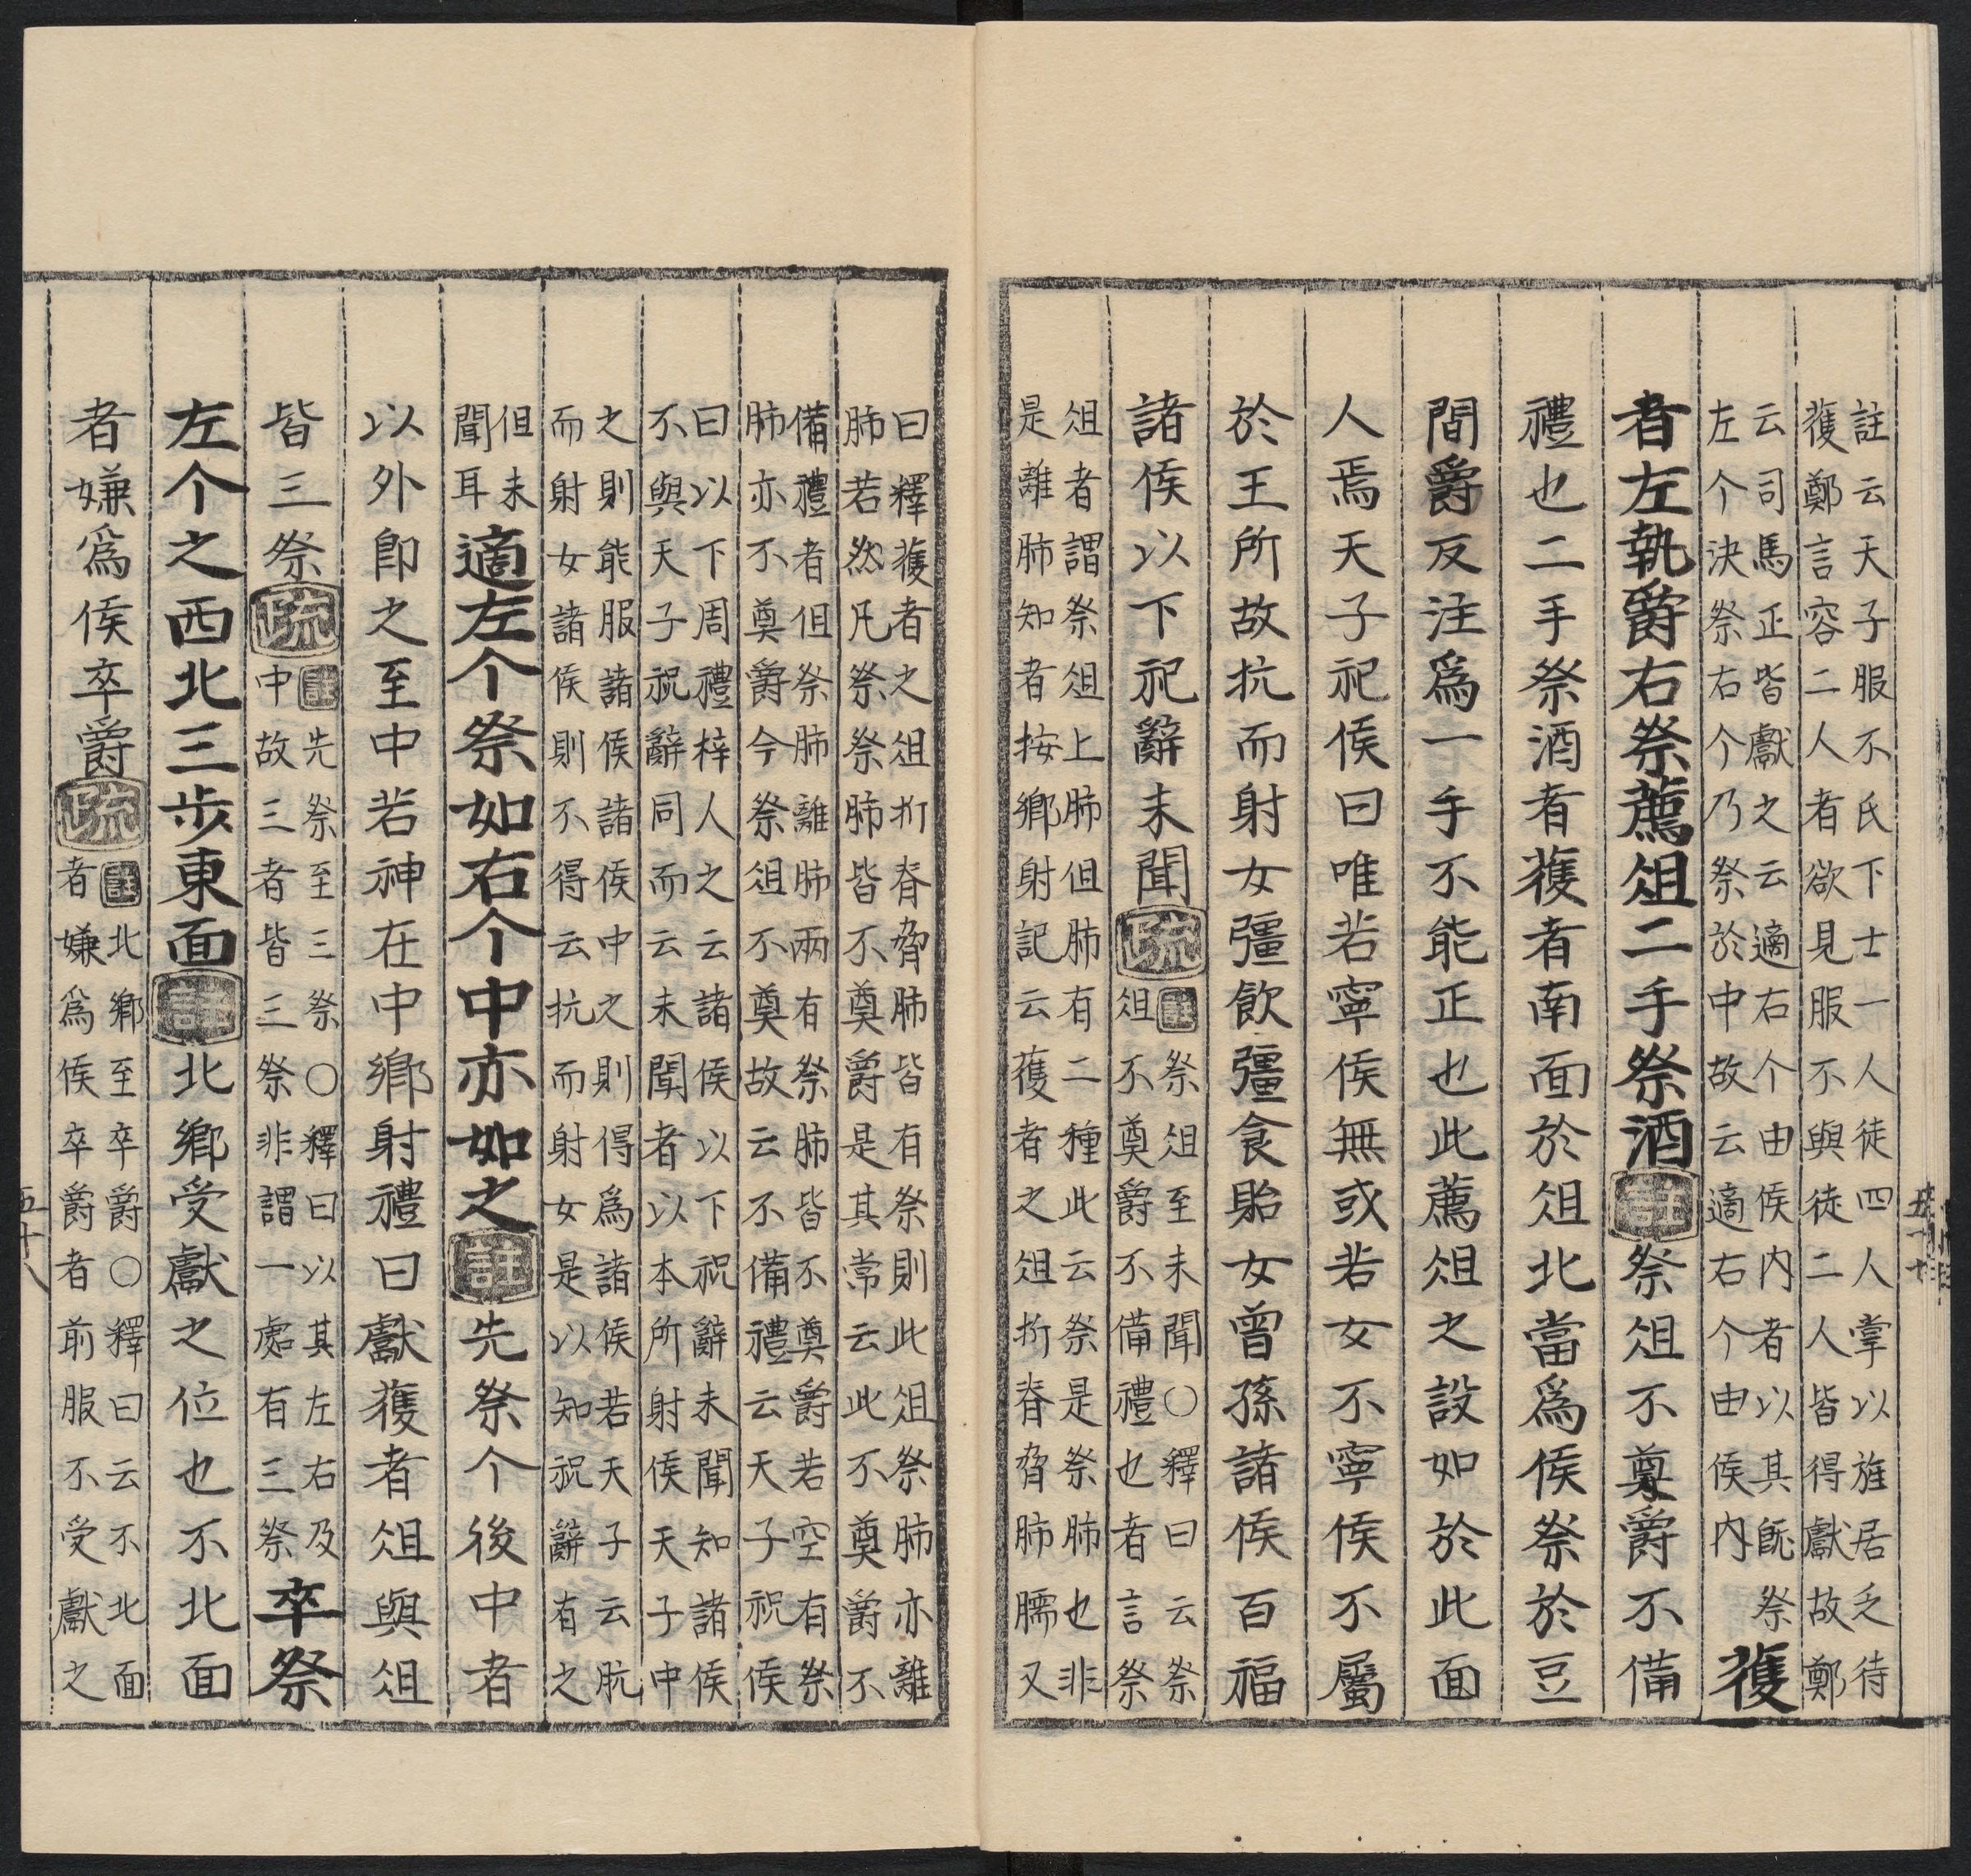 註云天子服不氏下士一人徒四人掌以旌居乏待
獲鄭言容二人者欲見服不與徒二人皆得獻故鄭
云司馬正皆獻之云適右个由侯内者以其既祭
左个決祭右个乃祭於中故云適右个由侯内
獲
者左執爵右祭薦俎二手祭酒註祭俎不奠爵不備
禮也二手祭酒者獲者南面於俎北當爲侯祭於豆
間爵反注爲一手不能正也此薦俎之設如於此面
人焉天子祀侯曰唯若寧侯無或若女不寧侯不屬
於王所故抗而射女彊飲彊食貽女曾孫諸侯百福
諸侯以下祀辭未聞疏
註祭俎至未聞○釋曰云祭
俎不奠爵不備禮也者言祭
俎者謂祭俎上肺但肺有二種此云祭是祭肺也非
是離肺知者按鄉射記云獲者之俎折脊脅肺臑又
曰釋獲者之俎折脊脅肺皆有祭則此俎祭肺亦離
肺若然凡祭祭肺皆不奠爵是其常云此不奠爵不
備禮者但祭肺離肺兩有祭肺皆不奠爵若空有祭
肺亦不奠爵今祭俎不奠故云不備禮云天子祝侯
曰以下周禮梓人之云諸侯以下祝辭未聞知諸侯
不與天子祝辭同而云未聞者以本所射侯天子中
之則能服諸侯諸侯中之則得爲諸侯若天子云肮
而射女諸侯則不得云抗而射女是以知祝辭有之
但未
聞耳
適左个祭如右个中亦如之註先祭个後中者
以外即之至中若神在中鄉射禮曰獻獲者俎與俎
皆三祭疏
註先祭至三祭○釋曰以其左右及
中故三者皆三祭非謂一處有三祭
卒祭
左个之西北三步東面註北鄉受獻之位也不北面
者嫌爲侯卒爵疏
註北鄉至卒爵○釋曰云不北面
者嫌爲侯卒爵者前服不受獻之
五十八